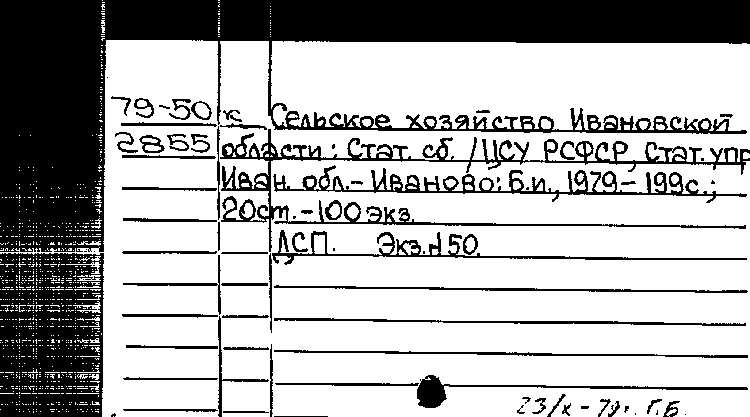 79-50 к Сельское хозяйство Ивановской
2855 области: Стат. сб. / ЦСУ РСФСР, Стат. упр
Иван. обл.-Иваново: Б.и., 1979.-199с.;
20см.-100 экз.
ДСП. Экз.№50.
23/X-79г. Г.Б.